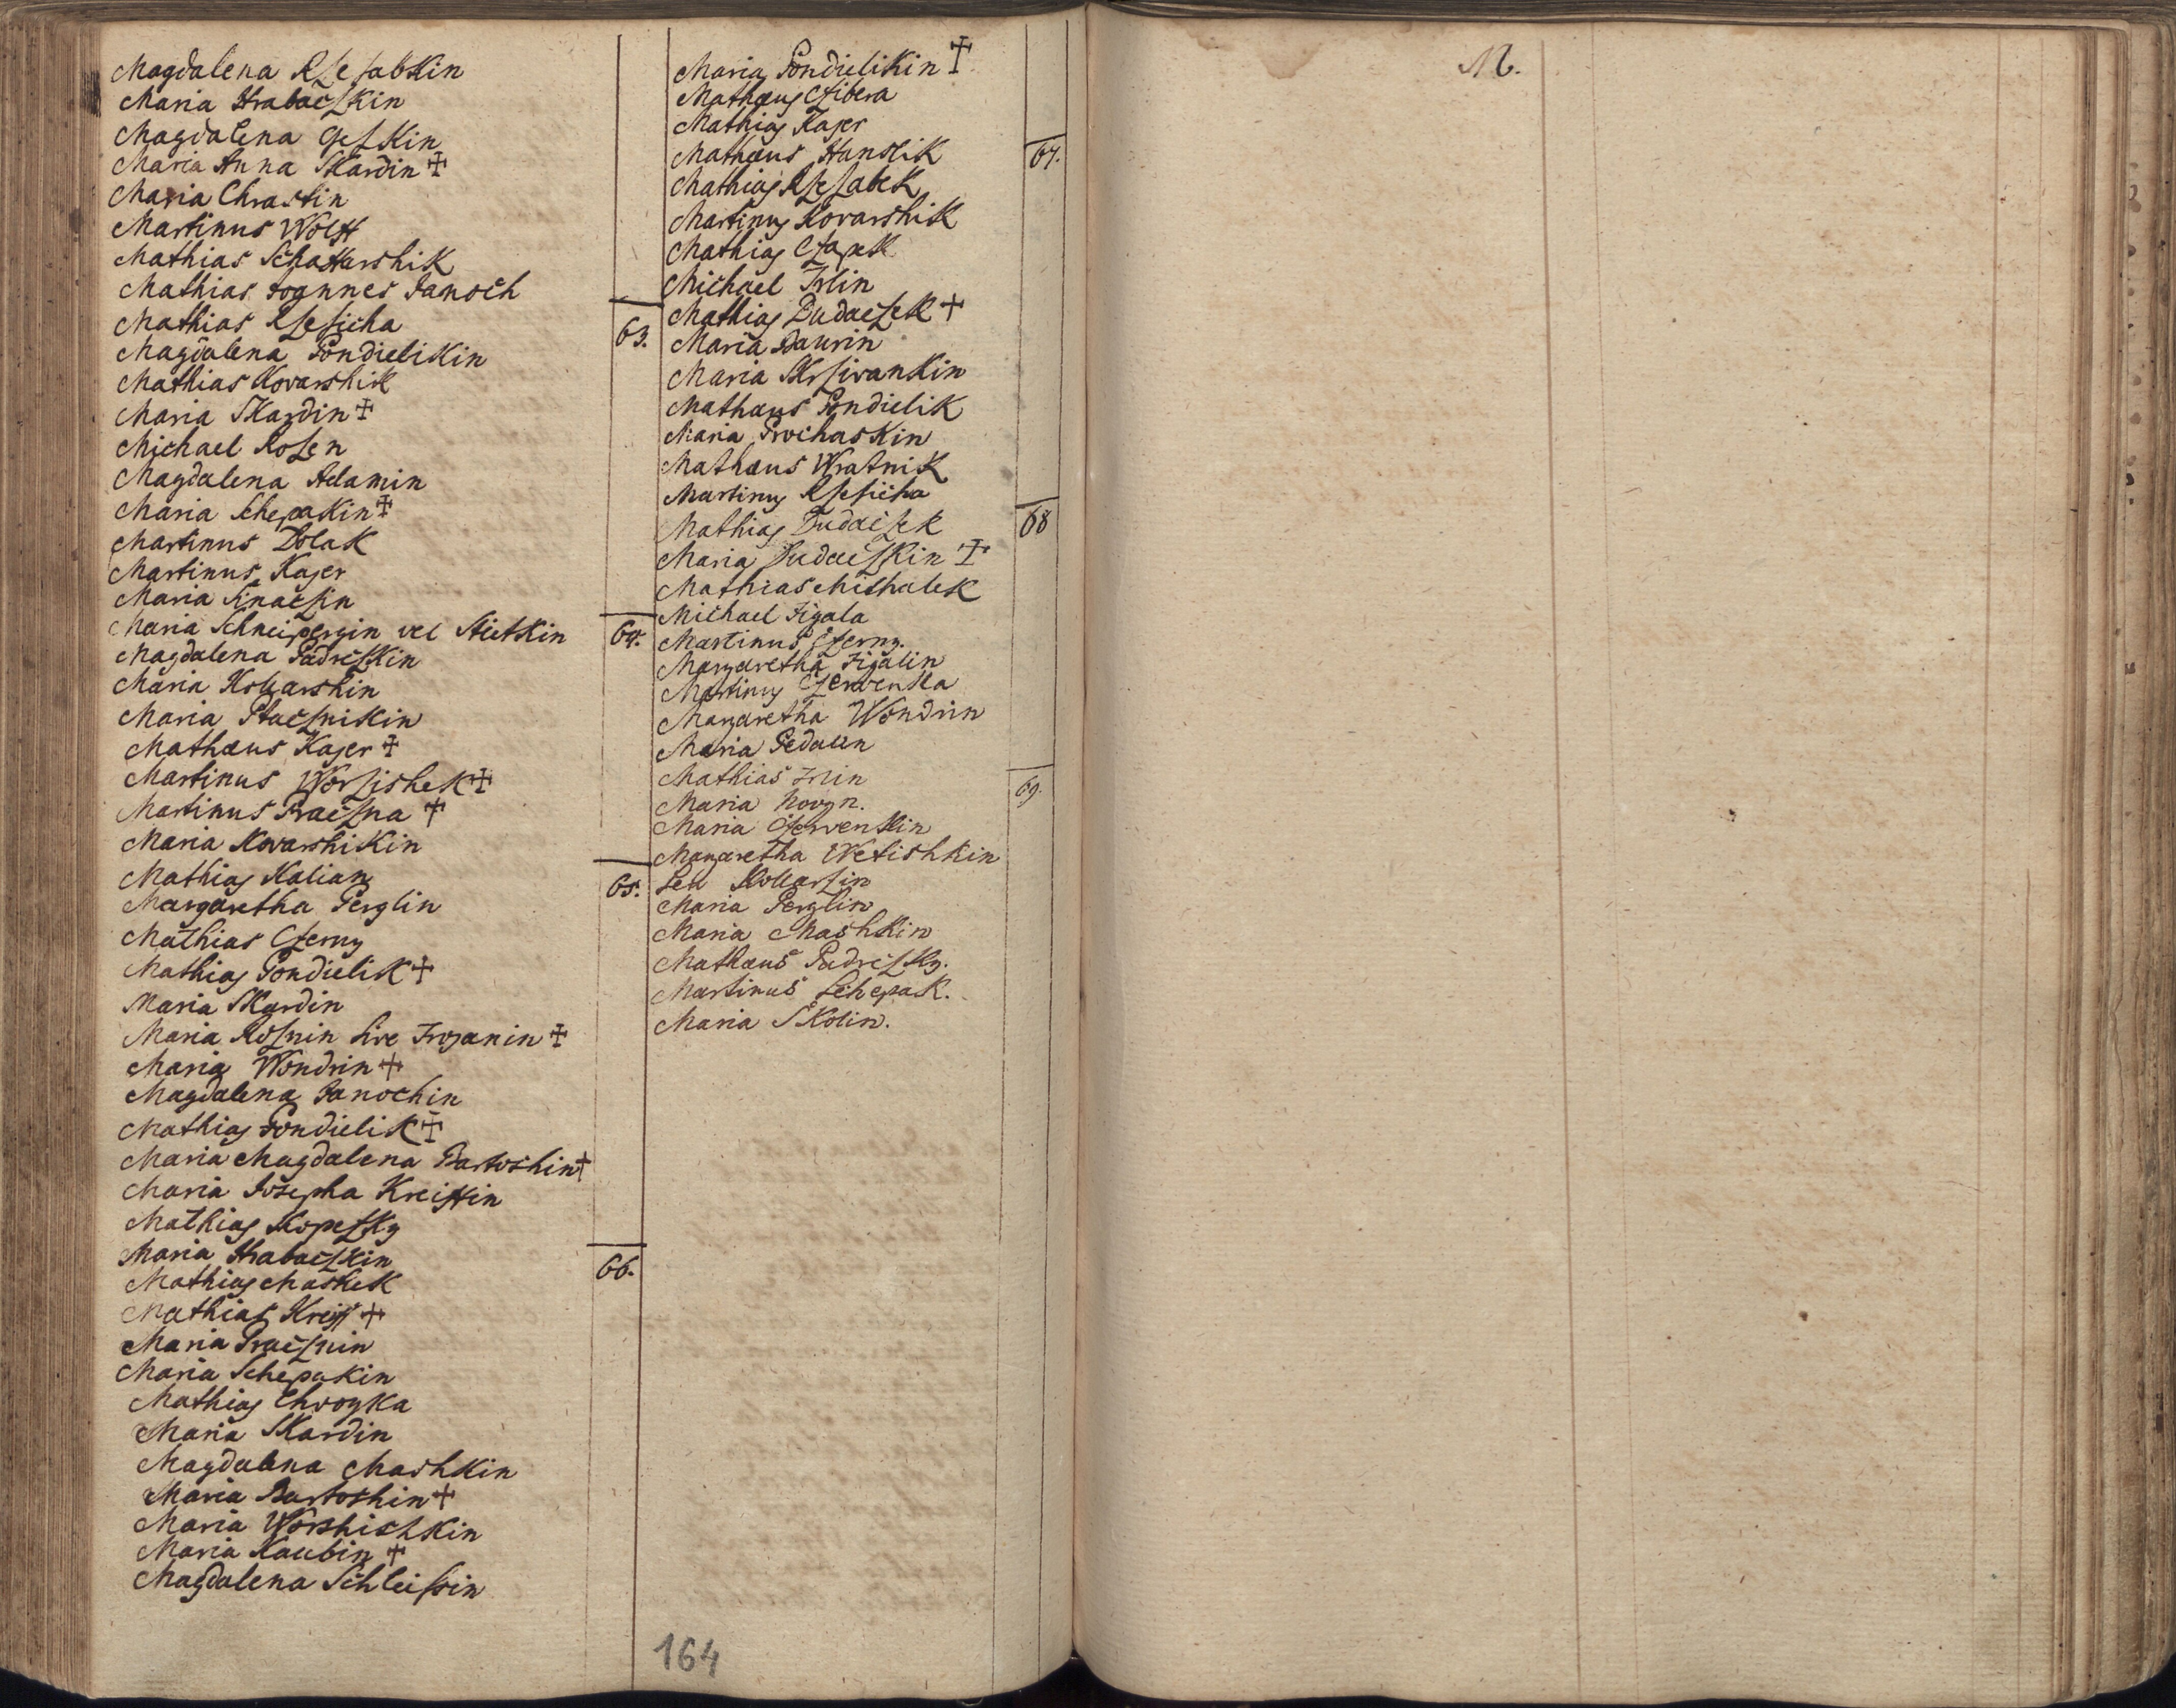 Magdalena Rzesabkin
Maria Hrabaczkin
Magdalena Geskin
Maria Anna Skardin ✝
Maria Chrastin
Martinus Wolff
Mathias Schaffarshik
Mathias Joannes Janoch
Mathias Rzesicha
63.
Magdalena Pondielikin
Mathias Kovarshik
Maria Skardin ✝
Michael Rozen
Magdalena Adamin
Maria Schepakin ✝
Martinus Dolak
Martinus Kajer
Maria
Maria Schneipergin vel
64.
Magdalena Padreskin
Maria Kollarshin
Maria Ptacznikin
Mathæus Kajer ✝
Martinus Worzishek ✝
Martinus Praczna ✝
Maria Kovarshikin
Mathias Kalian
65.
Margaretha Perglin
Mathias Czerny
Mathias Pondielik ✝
Maria Skardin
Maria Roznin sive Trojanin ✝
Maria Wondrin ✝
Magdalena Janochin
Mathias Pondielik ✝
Maria Magdalena Bartoshin ✝
Maria Josepha Kreissin
Mathias Kopetzky
Maria Hrabaczkin
66.
Mathias Mashek
Mathias Kreiss ✝
Maria Pracznin
Maria Schepakin
Mathias Chvoyka
Maria Skardin
Magdalena Mashkin
Maria Bartoshin ✝
Maria Worshishkin
Maria Kaubin ✝
Magdalena Schleissin
Maria Pondielikin ✝
Mathæus Czibera
Mathias Kajer
Mathæus Hanslik
67.
Mathias Rzezabek
Martinus Kovarshik
Mathias Czapek
Michael Irlin
Mathias Dudaczek ✝
Maria Baurin
Maria Skrzivankin
Mathæus Pondielik
Maria Prochaskin
Mathæus Wratnik
Martinus Rzesicha
Mathias Dudaczek
68
Maria Dudaczkin ✝
Mathias Michalek
Michael Zigala
Martinus Czerny.
Margaretha Zigalin
Martinus Czervenka
Margaretha Wondrin
Maria
Mathias Irlin
69.
Maria
Maria Czervenkin
Margaretha Wetishkin
Kollarzin
Maria Perglin
Maria Mashkin
Mathæus Padrezky.
Martinus Schepak.
Maria Skolin.
164
M.